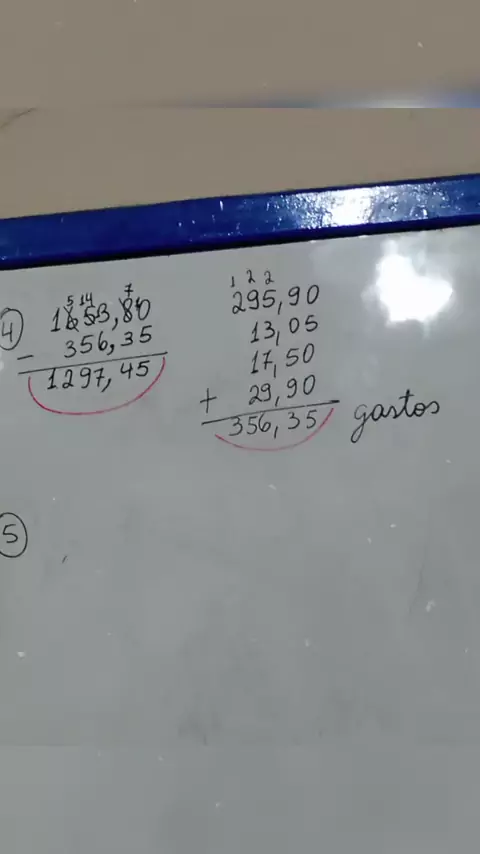 4
5 14 7
1653,80
- 356,35
1297,45
1 2 2
295,90
13,05
17,50
+ 29,90
356,35 gastos
5